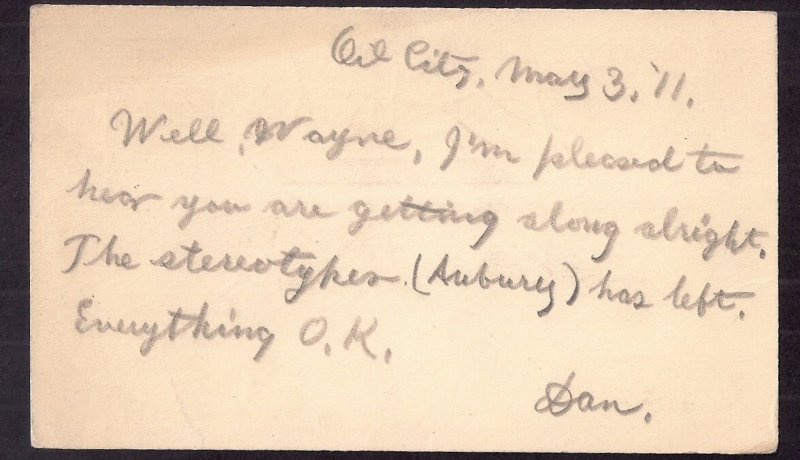 Oil City, May 3, '11.
Well, Wayne, I'm pleased to
hear you are getting along alright.
The stereotyper (Aubury) has left.
Everything O.K.
Dan.